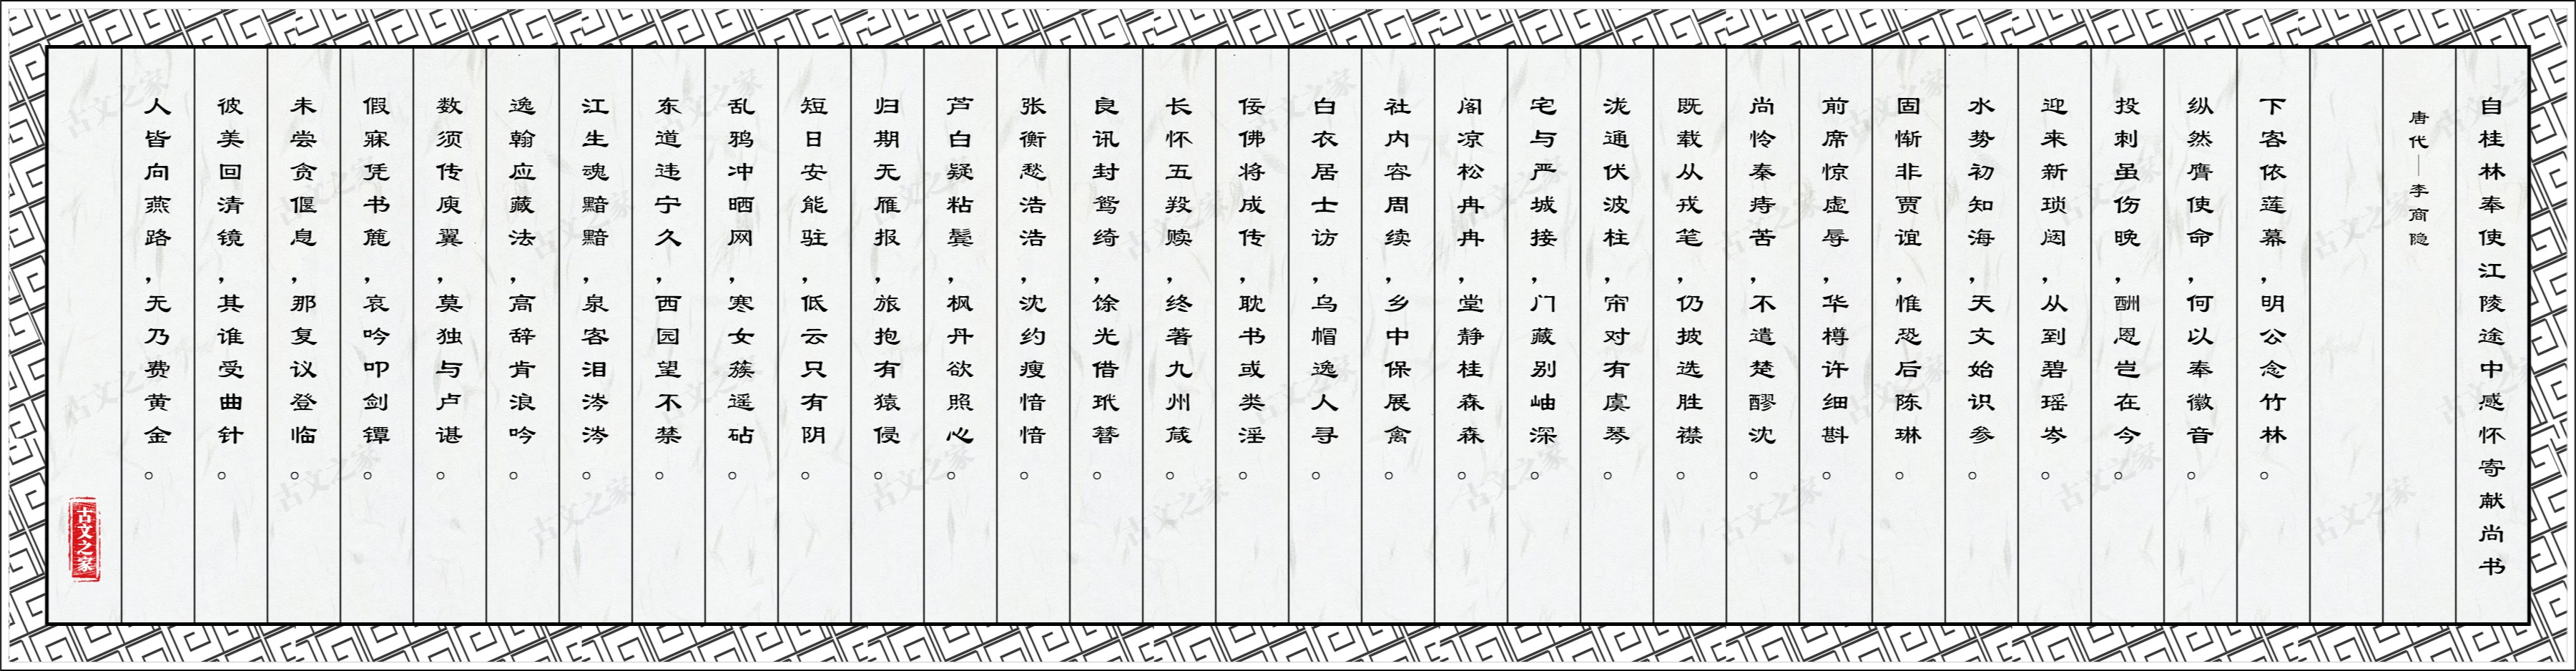 自桂林奉使江陵途中感怀寄献尚书
唐代—李商隐
下客依莲幕，明公念竹林。
纵然膺使命，何以奉徽音。
投刺虽伤晚，酬恩岂在今。
迎来新琐闼，从到碧瑶岑。
水势初知海，天文始识参。
固惭非贾谊，惟恐后陈琳。
前席惊虚辱，华樽许细斟。
尚怜秦痔苦，不遣楚醪沈。
既载从戎笔，仍披选胜襟。
泷通伏波柱，帘对有虞琴。
宅与严城接，门藏别岫深。
阁凉松冉冉，堂静桂森森。
社内容周续，乡中保展禽。
白衣居士访，乌帽逸人寻。
佞佛将成传，耽书或类淫。
长怀五羖赎，终著九州箴。
良讯封鸳绮，馀光借玳簪。
张衡愁浩浩，沈约瘦愔愔。
芦白疑粘鬓，枫丹欲照心。
归期无雁报，旅抱有猿侵。
短日安能驻，低云只有阴。
乱鸦冲晒网，寒女簇遥砧。
东道违宁久，西园望不禁。
江生魂黯黯，泉客泪涔涔。
逸翰应藏法，高辞肯浪吟。
数须传庾翼，莫独与卢谌。
假寐凭书簏，哀吟叩剑镡。
未尝贪偃息，那复议登临。
彼美回清镜，其谁受曲针。
人皆向燕路，无乃费黄金。
古文之家